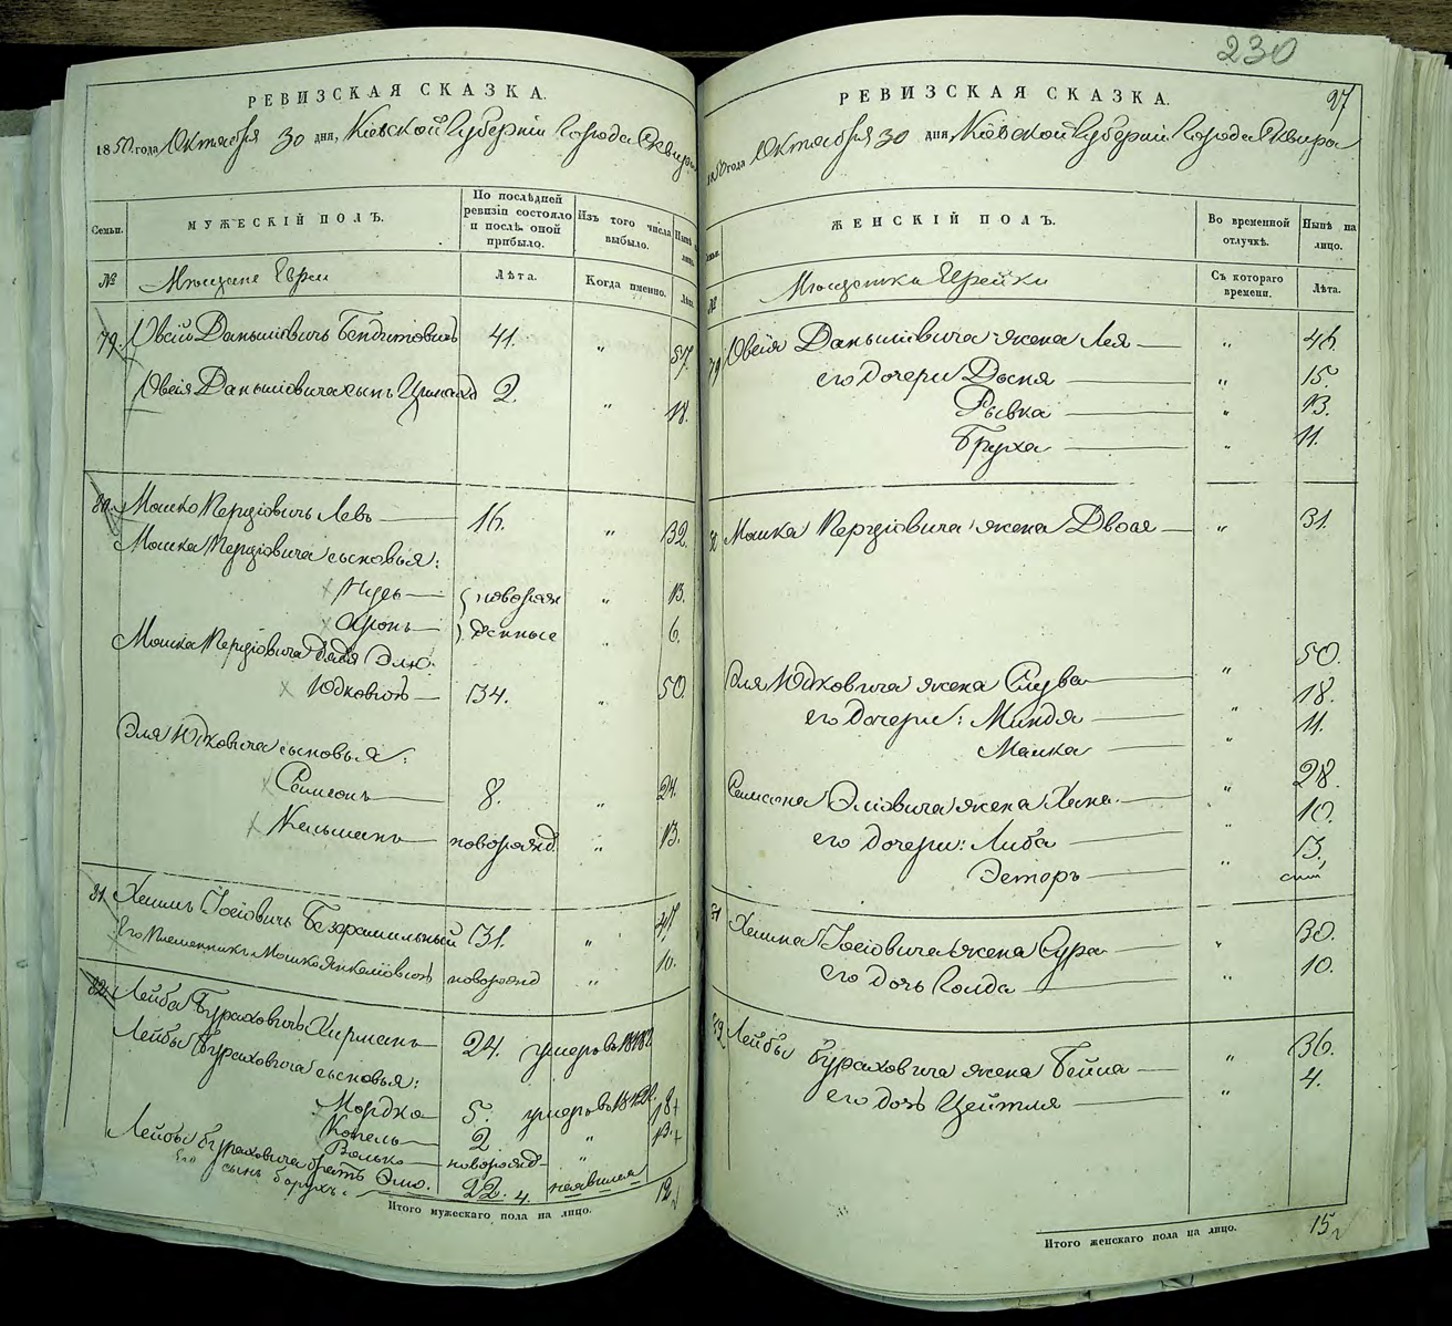 РЕВИЗСКАЯ СКАЗКА.
1850 года Октября 30 дня, Кіевской Губерніи Города Сквиры
Семьи.
МУЖЕСКІЙ ПОЛЪ.
По послѣдней ревизіи состояло и послѣ оной прибыло.
Изъ того числа выбыло.
Нынѣ на лицо.
№
Мѣщане Евреи
Лѣта.
Когда именно.
Лѣта.
79. Овсій Даньшіовичъ 41. „ 57.
Овсія Даньшіовича сынъ 2. „ 18.
80. Мошко Перціовичъ Левъ 16. „ 32.
Мошка Перціовича сыновья:
новорож „ 13.
Аронъ денные „ 6.
Мошка Перціовича дядя Элю
Юдковичъ 34. „ 50.
Эля Юдковича сыновья:
Самсонъ 8. „ 24.
Кельманъ новорожд. „ 13.
81. Хаимъ Іосіовичъ 31. „ 47.
Его племенникъ Мошко Янкеліовичъ новорожд „ 10.
82. Лейба Бураховичъ 24. умеръ въ
Лейбы Бураховича сыновья:
Мордко 5. умеръ въ
Копель 2 „ 18
Волько новорожд „ 13.
Лейбы Бураховича братъ Элю. 22.
Его сынъ Борухъ. 4.
Итого мужескаго пола на лицо. 12
230
27
РЕВИЗСКАЯ СКАЗКА.
1850 года Октября 30 дня, Кіевской Губерніи Города Сквира
Семьи.
ЖЕНСКІЙ ПОЛЪ.
Во временной отлучкѣ.
Нынѣ на лицо.
№
Мѣщанки Еврейки
Съ котораго времени.
Лѣта.
79 Овсія Даньшіовича жена Лея „ 46.
его дочери Дося „ 15.
Рывка „ 13.
Бруха „ 11.
80 Мошка Перціовича жена Двося „ 31.
Эля Юдковича жена „ 50.
его дочери: Миндя „ 18.
Малка „ 11.
Самсона Эліовича жена Хана „ 28.
его дочери: Либа „ 10.
Эстеръ „ 5.
81 Хаима Іосіовича жена Сура „ 30.
его дочь Голда „ 10.
82 Лейбы Бураховича жена Бейла „ 36.
его дочь Цейтля „ 4.
Итого женскаго пола на лицо. 15